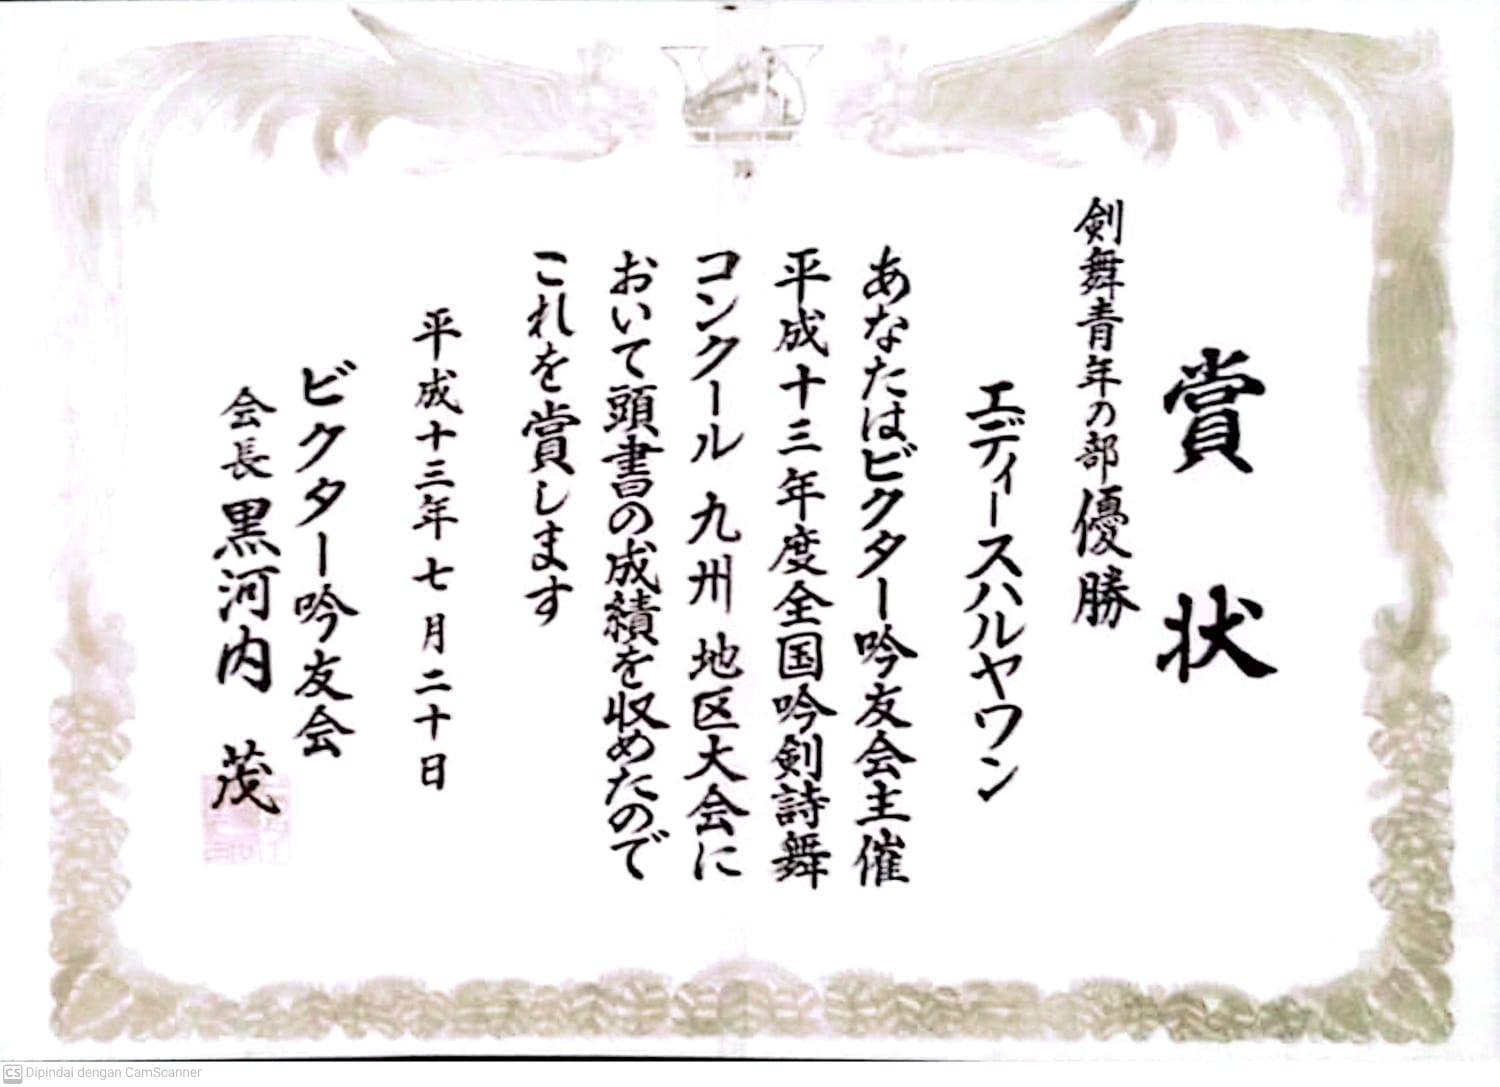 賞状
剣舞青年の部優勝
エディースハルヤワン
あなたはビクター吟友会主催
平成十三年度全国吟剣詩舞
コンクール九州地区大会に
おいて頭書の成績を収めたので
これを賞します
平成十三年七月二十日
ビクター吟友会
会長 黒河内 茂
CS Dipindai dengan CamScanner